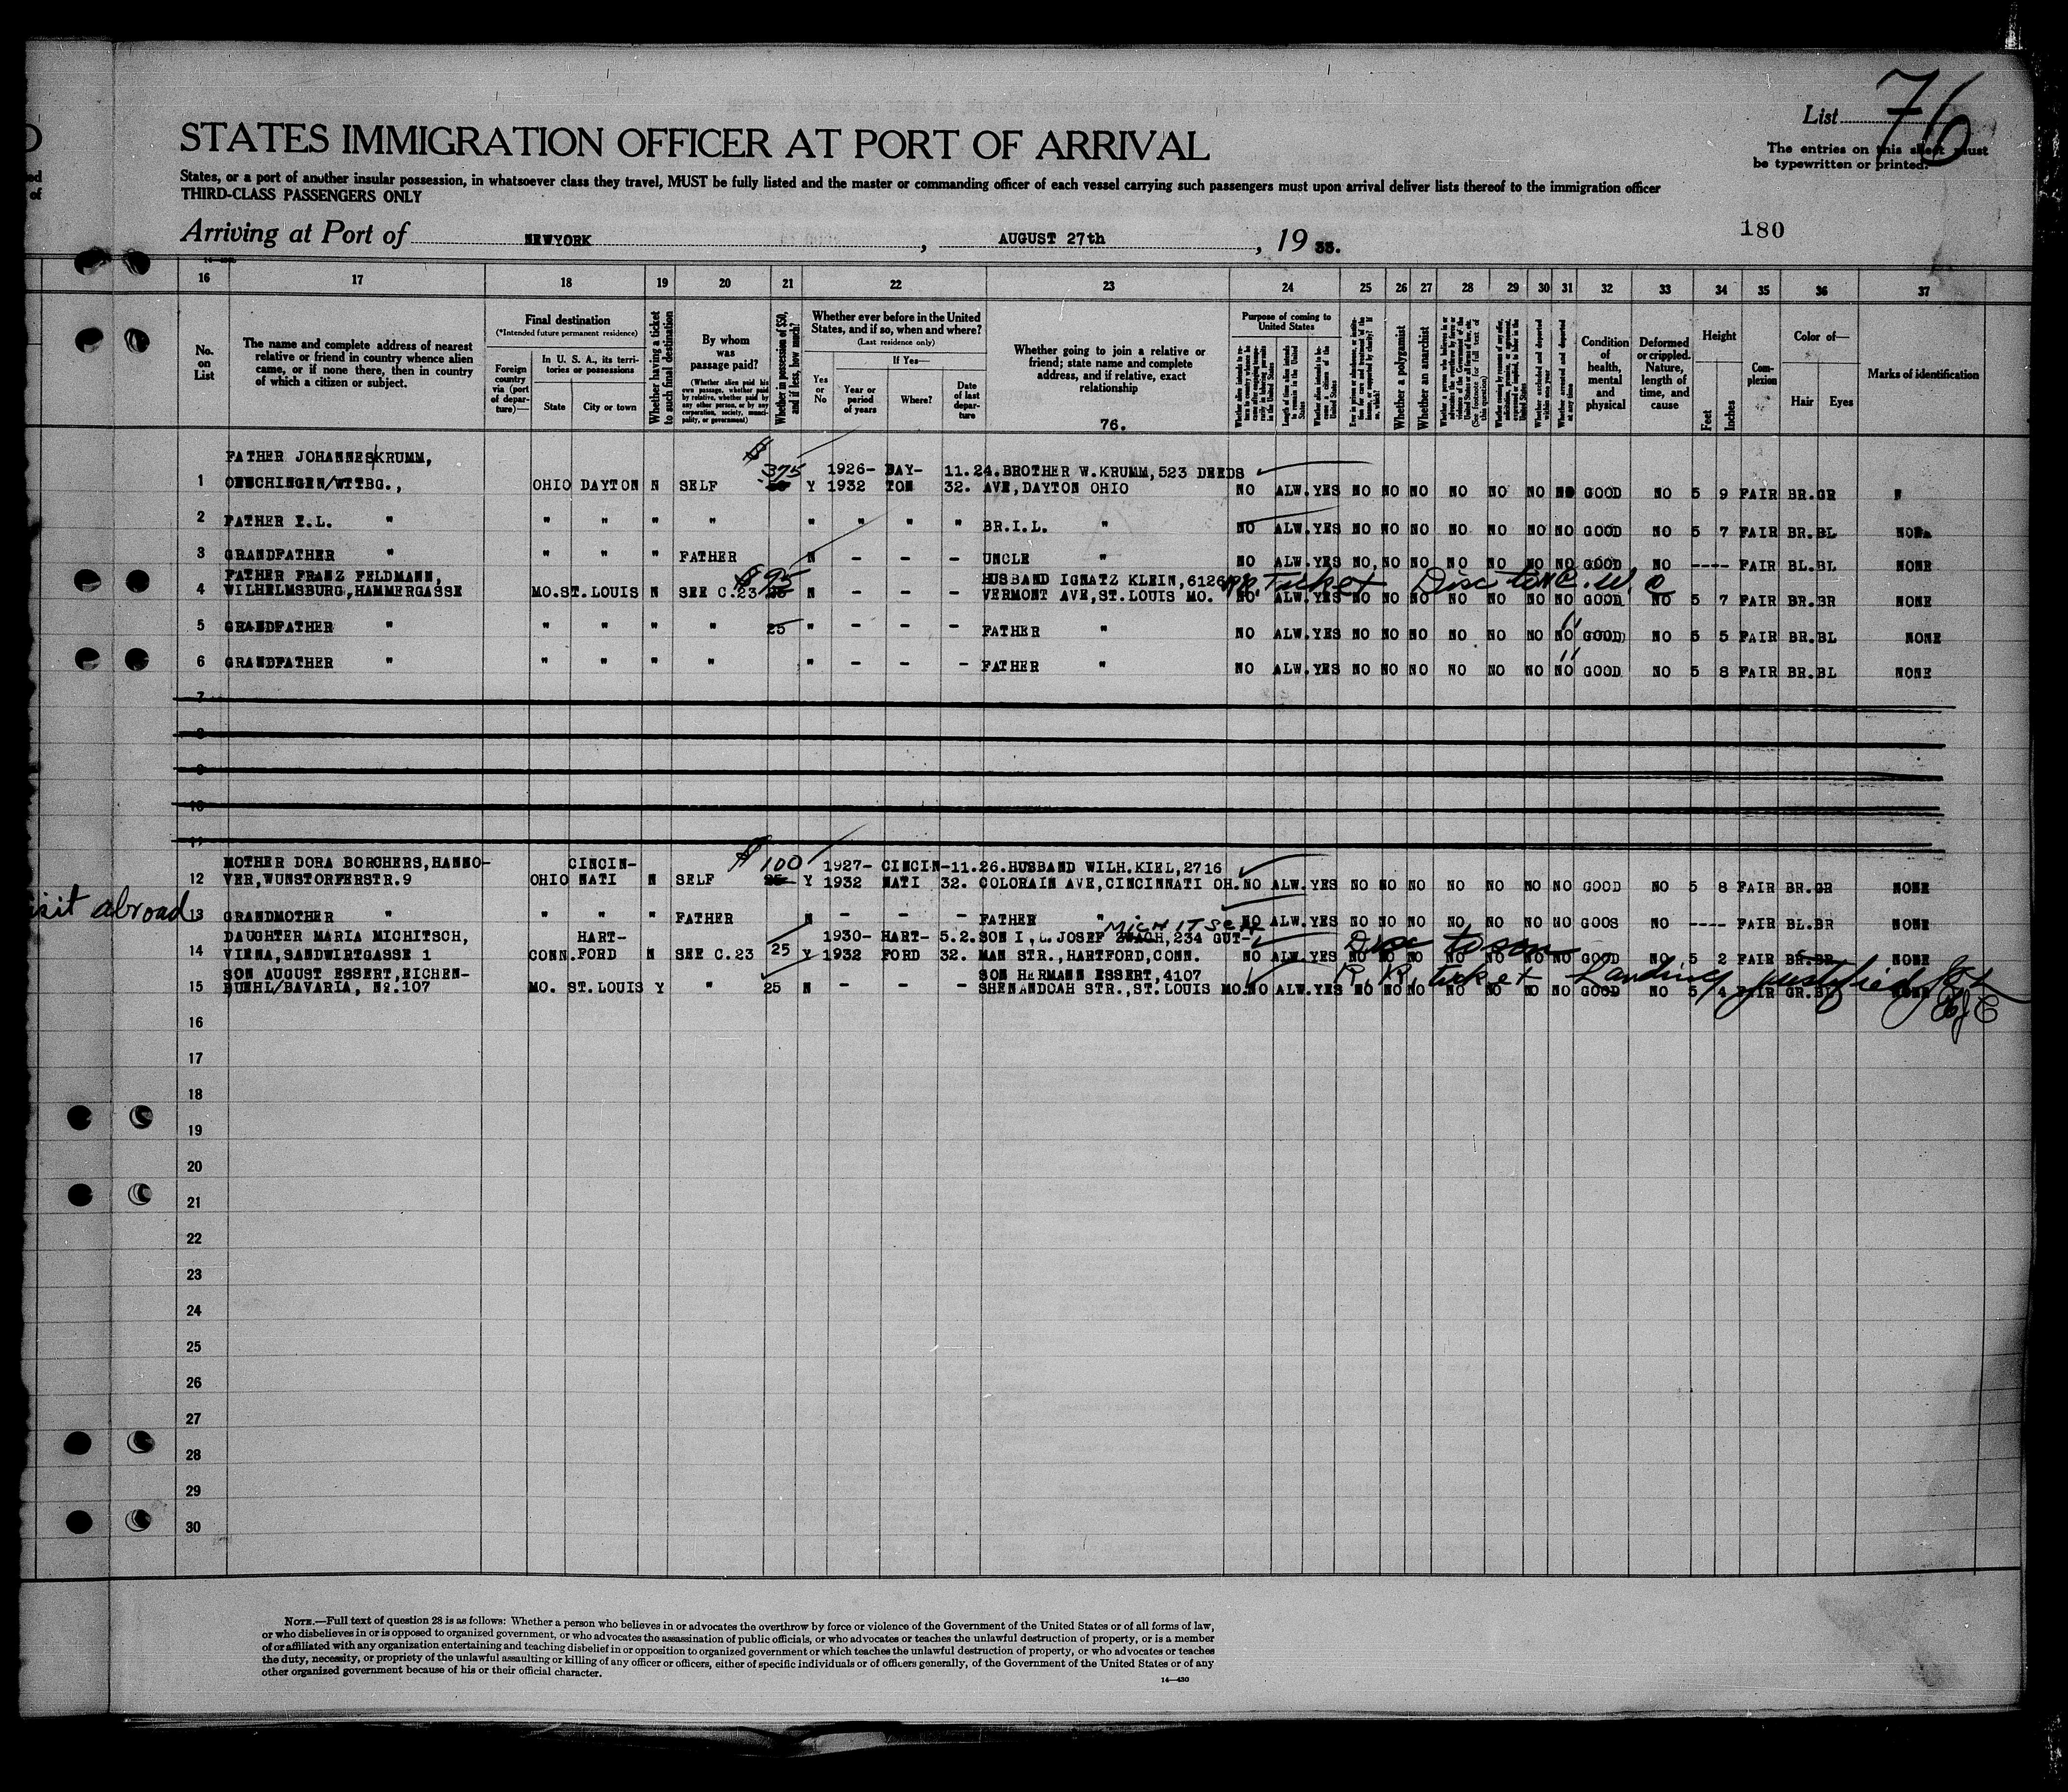 List 76
The entries on this sheet must
be typewritten or printed.
STATES IMMIGRATION OFFICER AT PORT OF ARRIVAL
States, or a port of another insular possession, in whatsoever class they travel, MUST be fully listed and the master or commanding officer of each vessel carrying such passengers must upon arrival deliver lists thereof to the immigration officer
THIRD-CLASS PASSENGERS ONLY
Arriving at Port of NEWYORK, AUGUST 27th, 19 33.
180
16 17 18 19 20 21 22 23 24 25 26 27 28 29 30 31 32 33 34 35 36 37
No. on List
The name and complete address of nearest
relative or friend in country whence alien
came, or if none there, then in country
of which a citizen or subject.
Final destination
(*Intended future permanent residence)
Foreign country via (port of departure)—
In U. S. A., its territories or possessions
State
City or town
Whether having a ticket to such final destination
By whom was passage paid?
(Whether alien paid his own passage, whether paid by relative, whether paid by any other person, or by any corporation, society, municipality, or government)
Whether in possession of $50, and if less, how much?
Whether ever before in the United
States, and if so, when and where?
(Last residence only)
Yes or No
If Yes—
Year or period of years
Where?
Date of last departure
Whether going to join a relative or
friend; state name and complete
address, and if relative, exact
relationship
76.
Purpose of coming to United States
Whether a polygamist
Whether an anarchist
Condition of health, mental and physical
Deformed or crippled. Nature, length of time, and cause
Height
Feet
Inches
Complexion
Color of—
Hair
Eyes
Marks of identification
FATHER JOHANNES KRUMM, $ 375 1926- DAY- 11.24. BROTHER W.KRUMM, 523 DEEDS
1 OEMCHINGEN/WTTBG., OHIO DAYTON N SELF Y 1932 TON 32. AVE, DAYTON OHIO NO ALW. YES NO NO NO NO NO NO NO GOOD NO 5 9 FAIR BR. GR N
2 FATHER I.L. " " " " " " " " " BR.I.L. " NO ALW. YES NO NO NO NO NO NO NO GOOD NO 5 7 FAIR BR. BL NONE
3 GRANDFATHER " " " " FATHER N - - - UNCLE " NO ALW. YES NO NO NO NO NO NO NO GOOD NO ---- FAIR BL. BL NONE
FATHER FRANZ FELDMANN, $ 95 HUSBAND IGNATZ KLEIN, 6126 ticket Disc to
4 WILHELMSBURG, HAMMERGASSE MO. ST. LOUIS N SEE C.23 N - - - VERMONT AVE, ST. LOUIS MO. NO ALW. YES NO NO NO NO NO NO NO GOOD NO 5 7 FAIR BR. BR NONE
5 GRANDFATHER " " " " " 25 " - - - FATHER " NO ALW. YES NO NO NO NO NO NO NO GOOD NO 5 5 FAIR BR. BL NONE
6 GRANDFATHER " " " " " " - - - FATHER " NO ALW. YES NO NO NO NO NO NO NO GOOD NO 5 8 FAIR BR. BL NONE
7
8
9
10
11
MOTHER DORA BORCHERS, HANNO- CINCIN- $ 100 1927- CINCIN- 11.26. HUSBAND WILH. KIEL, 2716
12 VER, WUNSTORFERSTR. 9 OHIO NATI N SELF 25 Y 1932 NATI 32. COLORAIN AVE, CINCINNATI OH. NO ALW. YES NO NO NO NO NO NO NO GOOD NO 5 8 FAIR BR. GR NONE
abroad
13 GRANDMOTHER " " " " FATHER N - - - FATHER " NO ALW. YES NO NO NO NO NO NO NO GOOS NO ---- FAIR BL. BR NONE
MICHITSCH
DAUGHTER MARIA MICHITSCH, HART- 1930- HART- 5.2. SON I.L. JOSEF 234 GUT- Disc to son
14 VIENA, SANDWIRTGASSE 1 CONN. FORD N SEE C.23 25 Y 1932 FORD 32. MAN STR., HARTFORD, CONN. NO ALW. YES NO NO NO NO NO NO NO GOOD NO 5 2 FAIR BR. BR NONE
SON AUGUST ESSERT, EICHEN- SON HERMANN ESSERT, 4107 R.R. ticket Landing justified
15 BUEHL/BAVARIA, No. 107 MO. ST. LOUIS Y " 25 N - - - SHENANDOAH STR., ST. LOUIS MO. NO ALW. YES NO NO NO NO NO NO NO GOOD NO 5 4 FAIR GR. BL NONE
16
17
18
19
20
21
22
23
24
25
26
27
28
29
30
NOTE.—Full text of question 28 is as follows: Whether a person who believes in or advocates the overthrow by force or violence of the Government of the United States or of all forms of law,
or who disbelieves in or is opposed to organized government, or who advocates the assassination of public officials, or who advocates or teaches the unlawful destruction of property, or is a member
of or affiliated with any organization entertaining and teaching disbelief in or opposition to organized government or which teaches the unlawful destruction of property, or who advocates or teaches
the duty, necessity, or propriety of the unlawful assaulting or killing of any officer or officers, either of specific individuals or of officers generally, of the Government of the United States or of any
other organized government because of his or their official character.
14—430